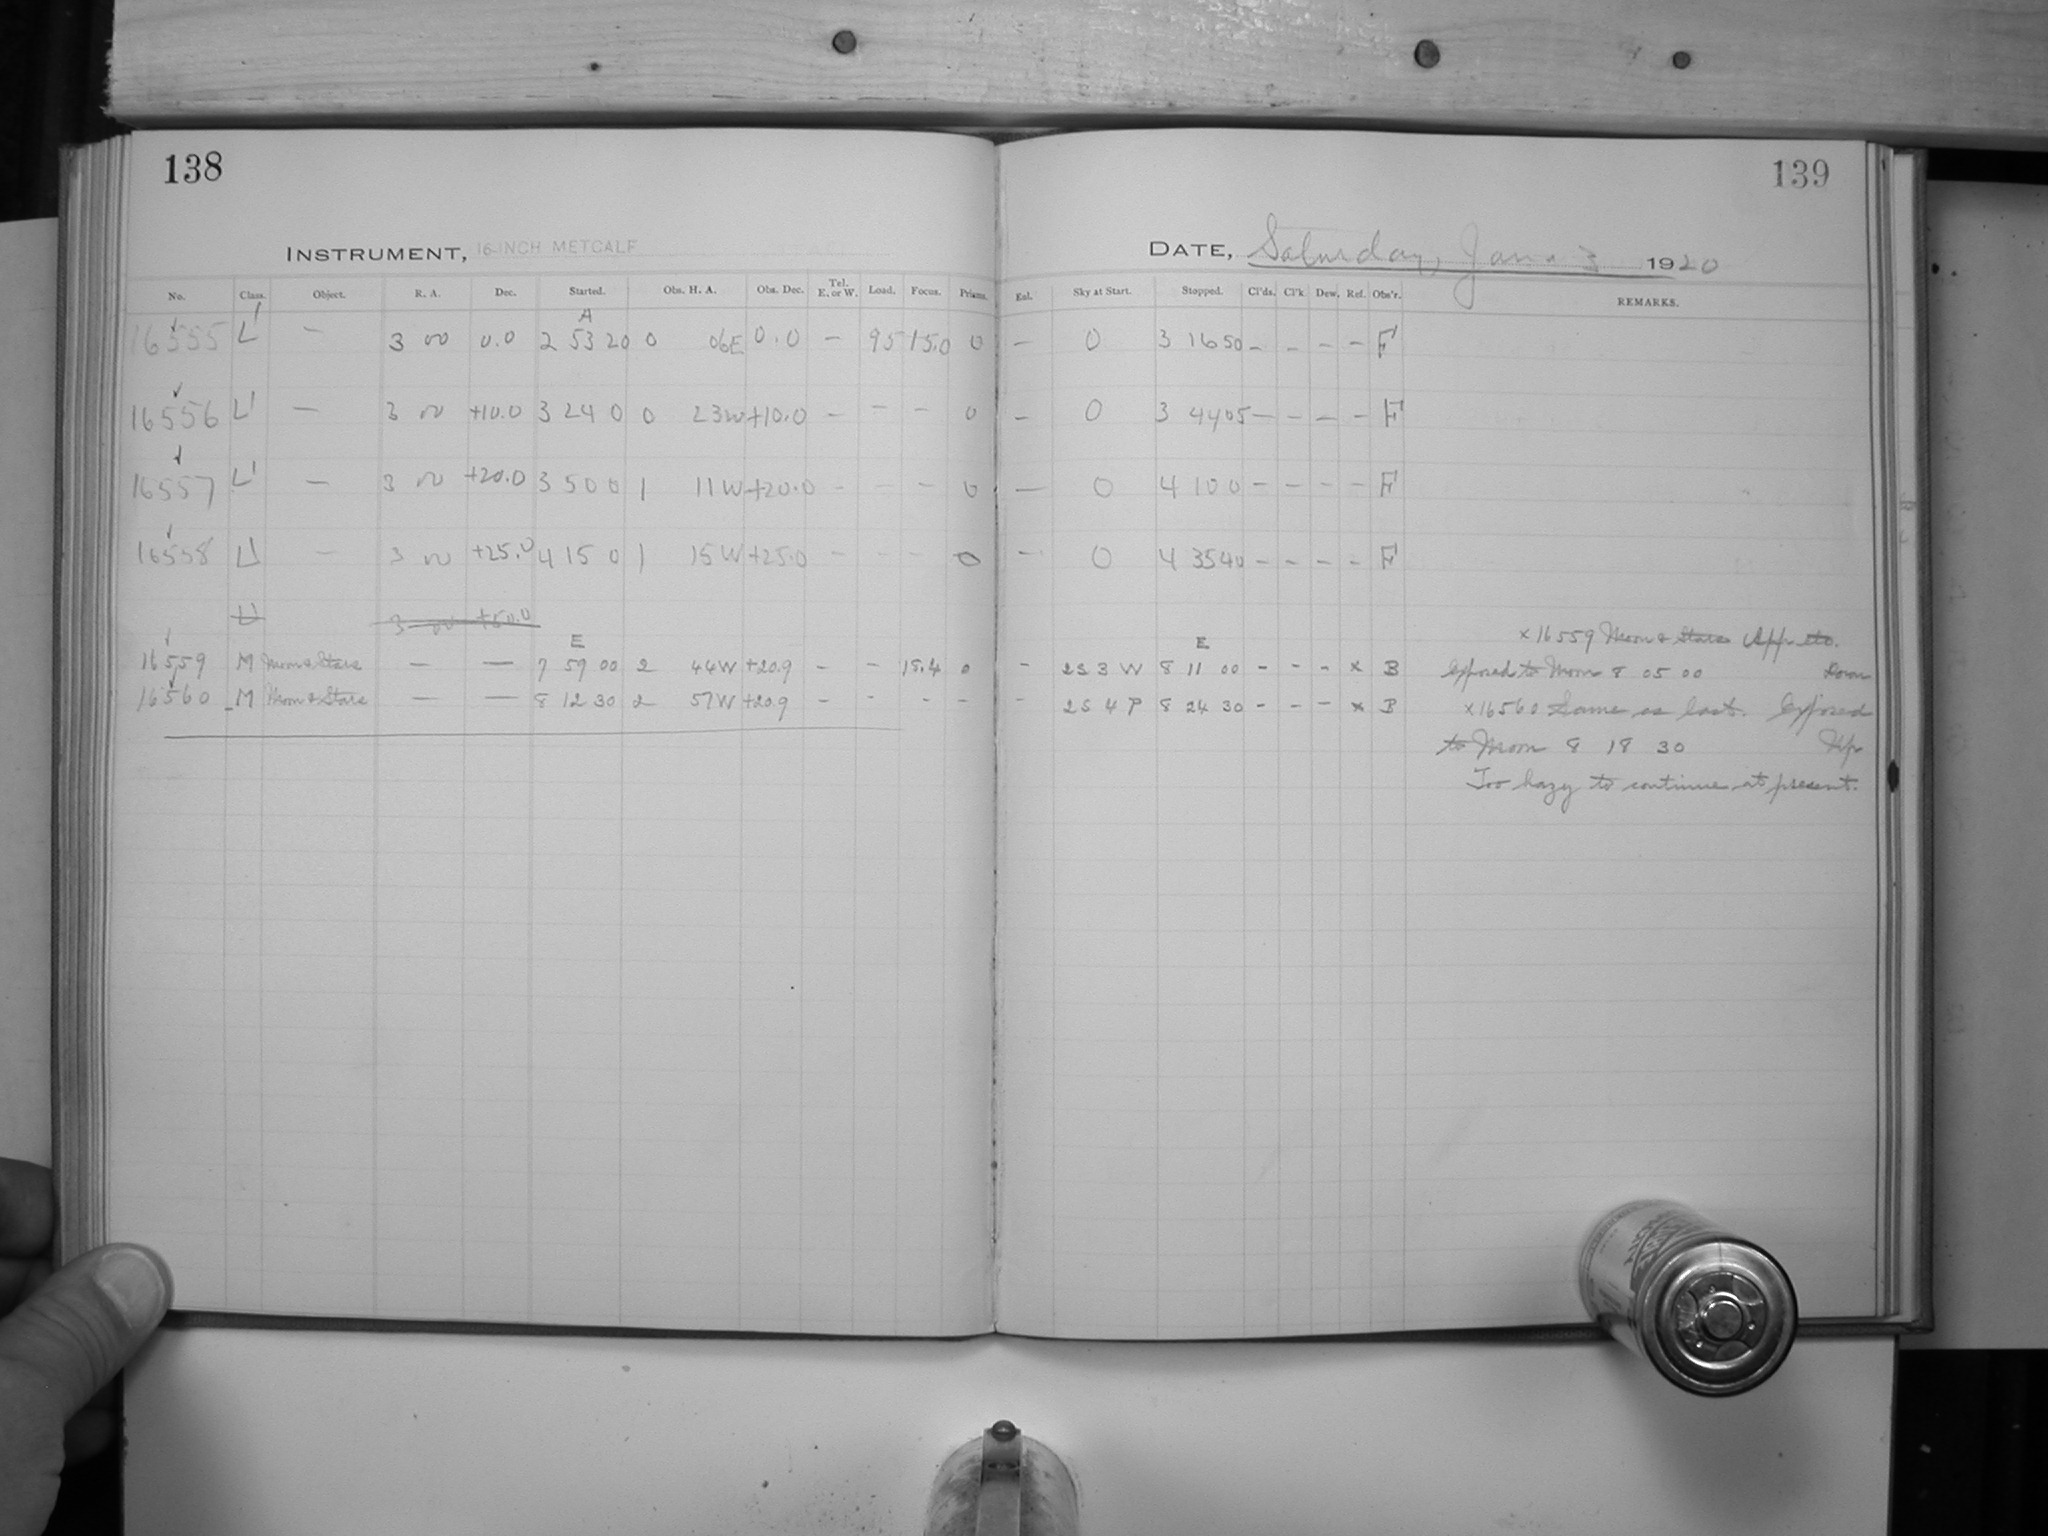 138
139
INSTRUMENT, 16-INCH METCALF
DATE, Saturday, Jan. 3 1920
No. Class. Object. R. A. Dec. Started. Obs. H. A. Obs. Dec. Tel. E. or W. Load. Focus. Prisms. Enl. Sky at Start. Stopped. Cl'ds. Cl'k. Dew. Ref. Obs'r. REMARKS.
A
16555 L' — 3 00 0.0 2 53 20 0 06E 0.0 — 95 15.0 0 — 0 3 16 50 — — — — F
16556 L' — 3 00 +10.0 3 24 0 0 23W +10.0 — — — 0 — 0 3 44 05 — — — — F
16557 L' — 3 00 +20.0 3 50 0 1 11W +20.0 — — — 0 — 0 4 10 0 — — — — F
16558 L' — 3 00 +25.0 4 15 0 1 15W +25.0 — — — 0 — 0 4 35 40 — — — — F
L' 3 00 +50.0
E E
16559 M Moon & Stars — — 7 59 00 2 44W +20.9 — — 15.4 0 — 2S 3 W 8 11 00 — — — x B
16560 M Moon & Stars — — 8 12 30 2 57W +20.9 — — — — — 2S 4 P 8 24 30 — — — x B
x 16559 Moon & Stars App etc.
Exposed to Moon 8 05 00 Down
x 16560 Same as last. Exposed
to Moon 8 18 30 Up
Too hazy to continue at present.